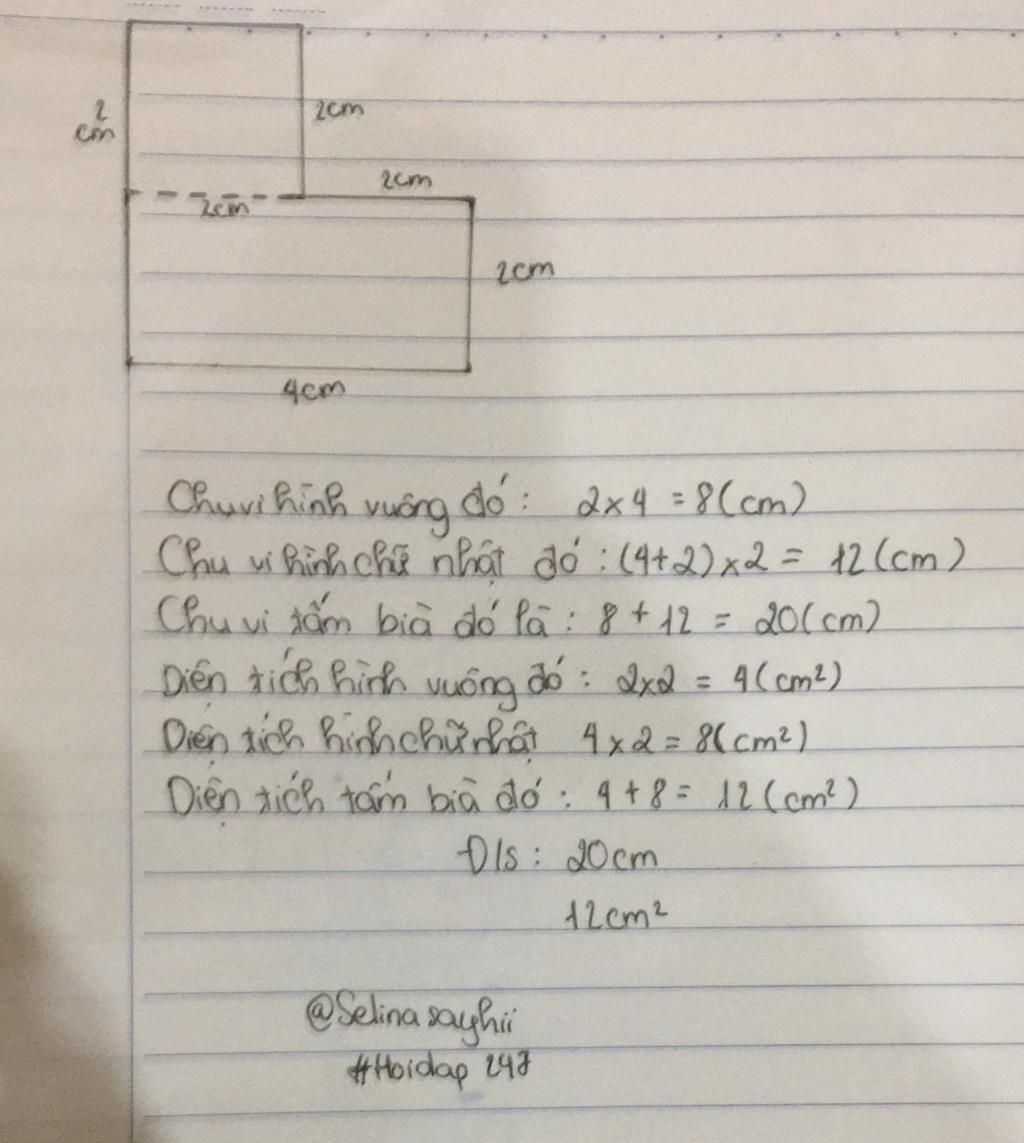 2
cm
2cm
2cm
2cm
2cm
4cm
Chu vi hình vuông đó: 2x4 = 8(cm)
Chu vi hình chữ nhật đó: (4+2)x2 = 12(cm)
Chu vi tấm bià đó là: 8 + 12 = 20(cm)
Diện tích hình vuông đó: 2x2 = 4(cm²)
Diện tích hình chữ nhật 4x2 = 8(cm²)
Diện tích tấm bià đó: 4 + 8 = 12(cm²)
Đ/s: 20cm
12cm²
@Selinasayhii
#Hoidap 247